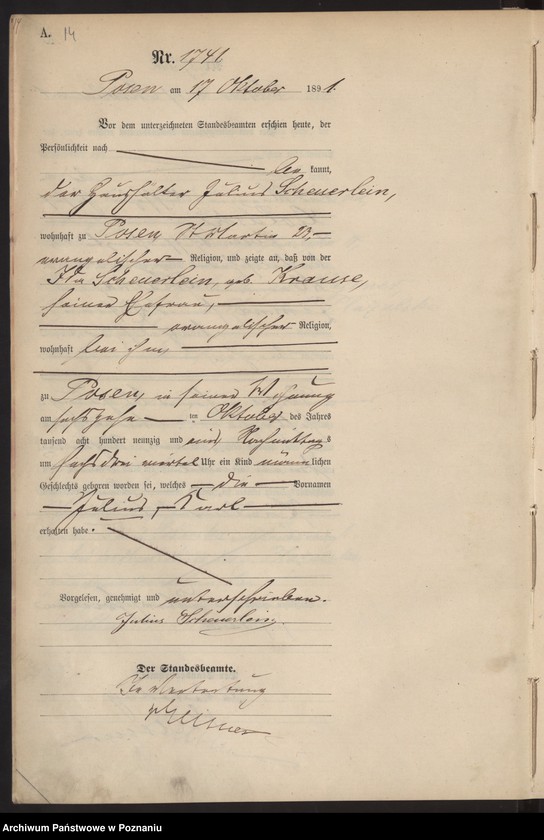 A. 14
Nr. 1741
Posen am 17 Oktober 1891.
Vor dem unterzeichneten Standesbeamten erschien heute, der
Persönlichkeit nach
be kannt,
der Haushälter Julius Scheuerlein,
wohnhaft zu Posen, St Martin 23,
evangelischer Religion, und zeigte an, daß von der
Ida Scheuerlein, geb. Krause,
seiner Ehefrau,
evangelischer Religion,
wohnhaft bei ihm,
zu Posen, in seiner Wohnung
am sechszehn ten Oktober des Jahres
tausend acht hundert neunzig und eins Nachmittags
um sechs drei viertel Uhr ein Kind männlichen
Geschlechts geboren worden sei, welches die Vornamen
Julius, Karl
erhalten habe.
Vorgelesen, genehmigt und unterschrieben.
Julius Scheuerlein
Der Standesbeamte.
In Vertretung
Archiwum Państwowe w Poznaniu